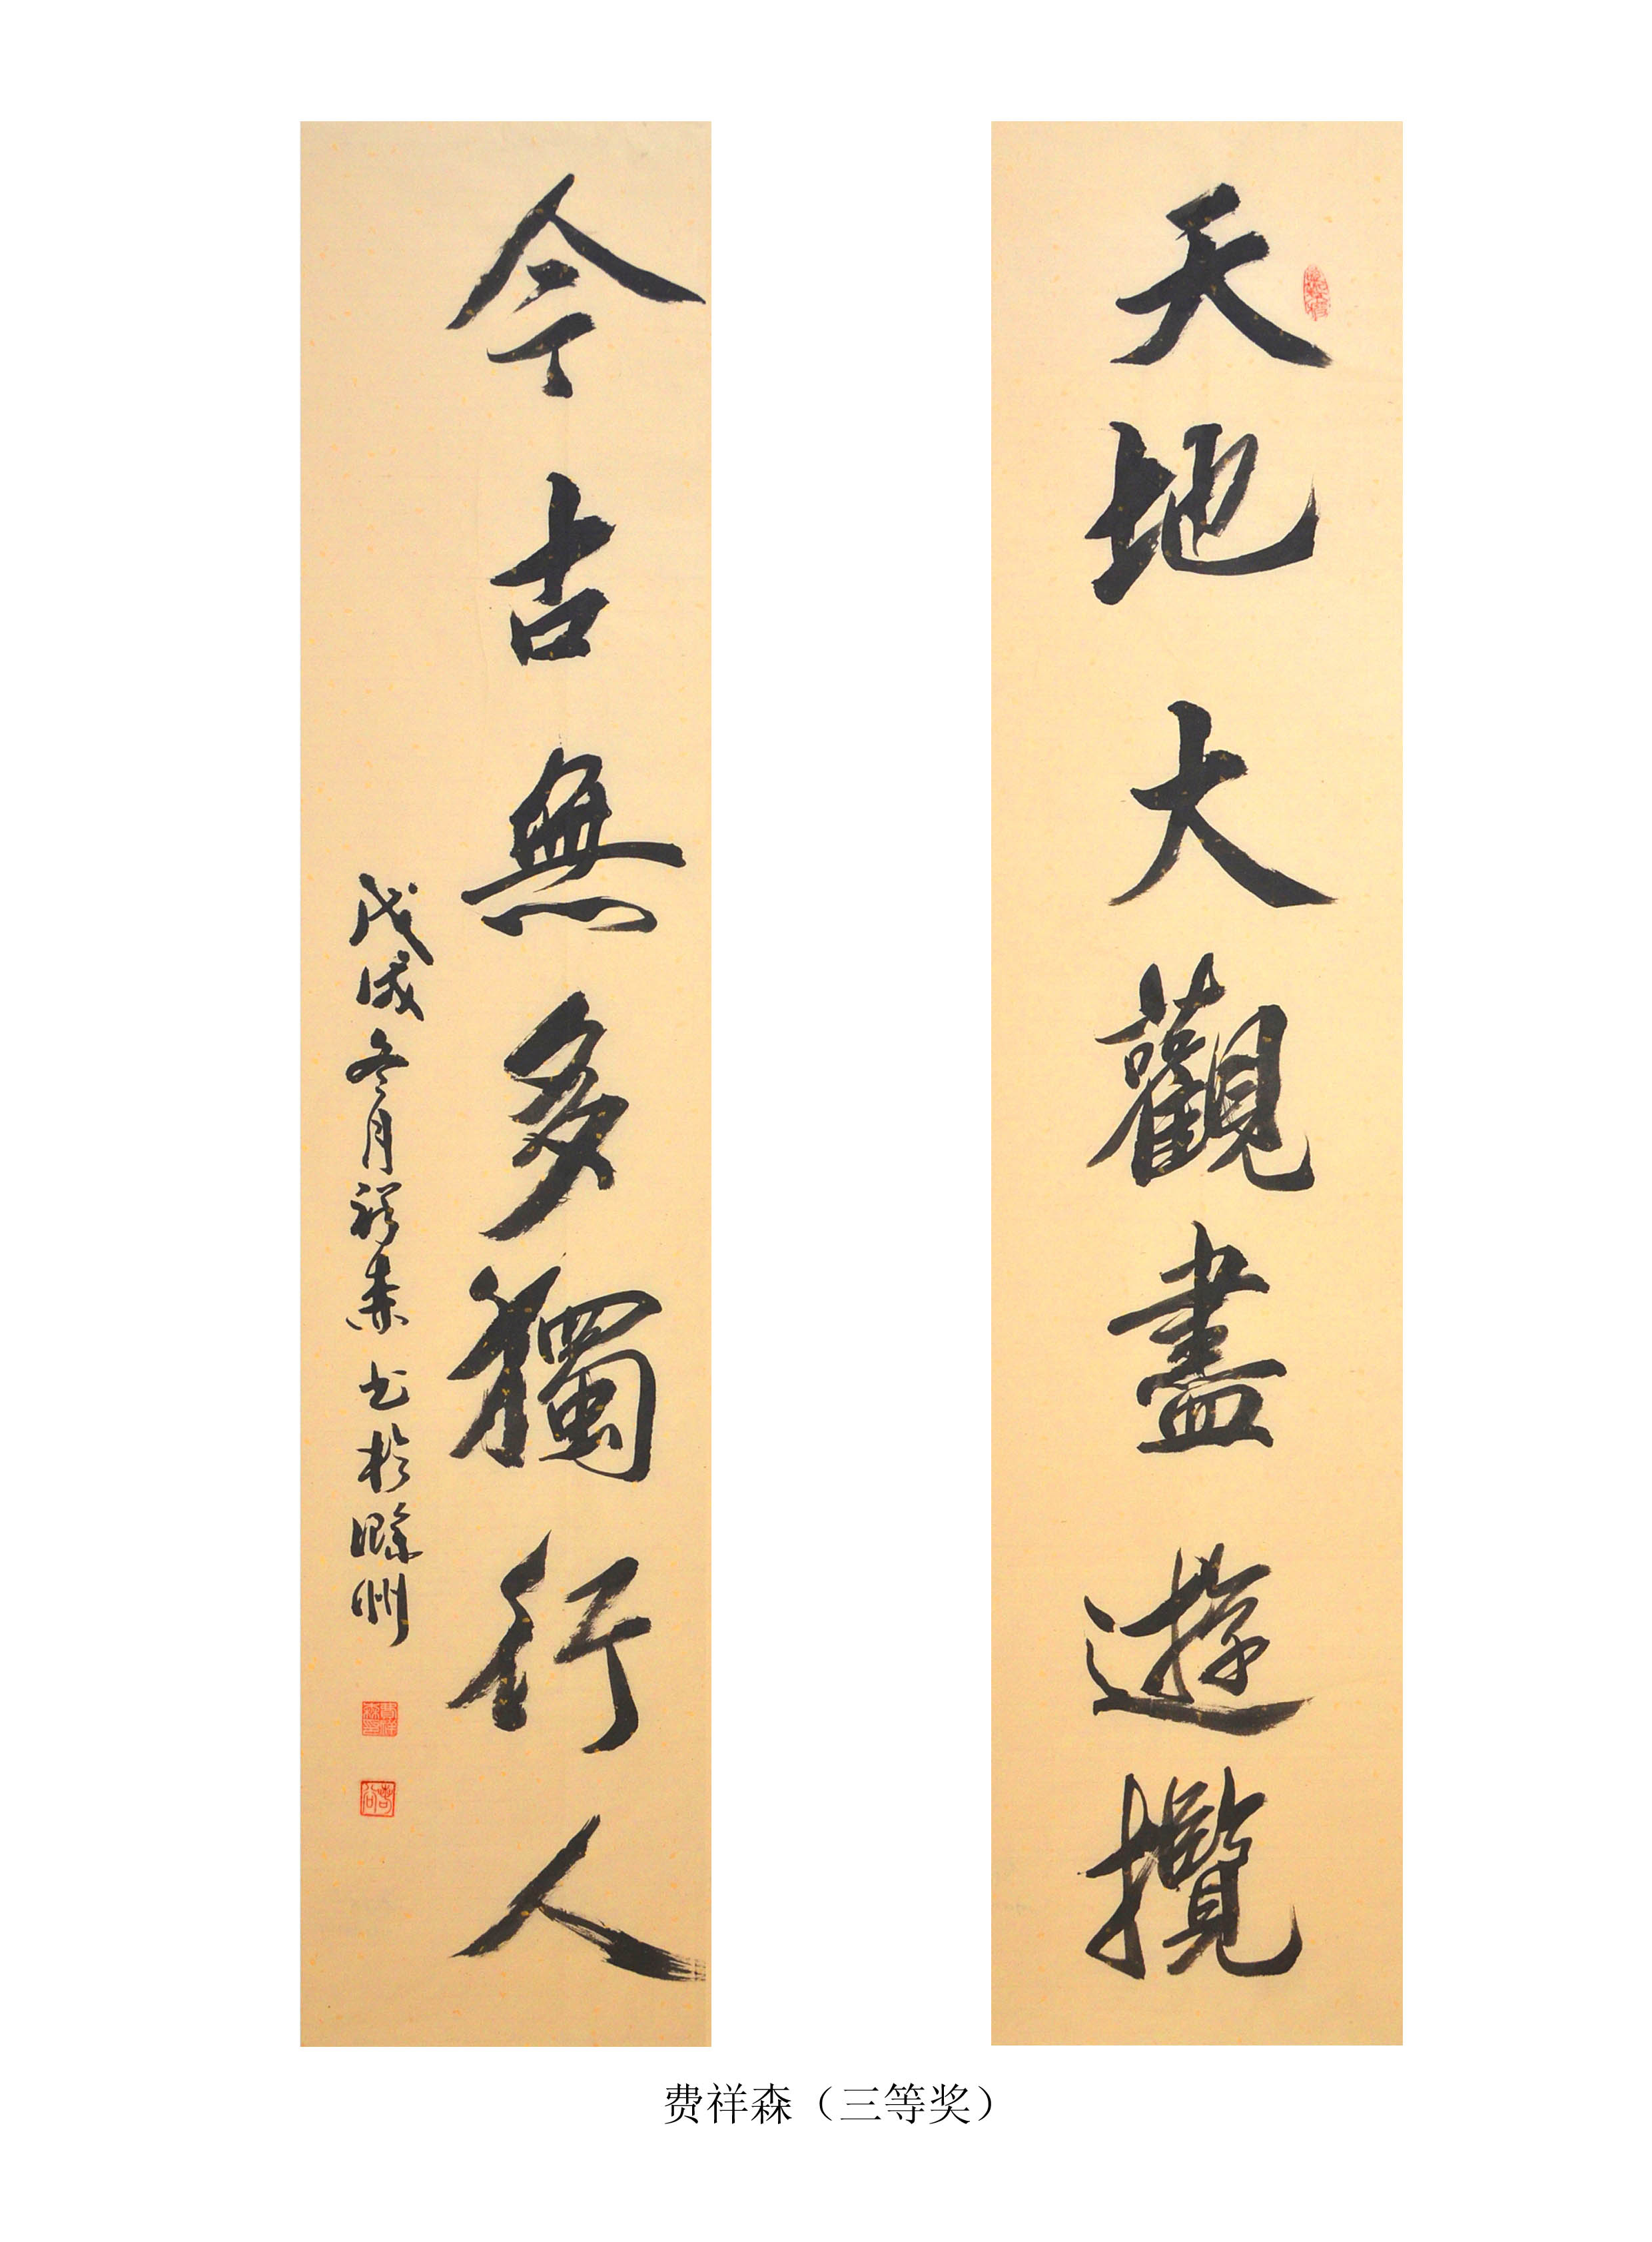 天地大觀盡遊攬
今古無多獨行人
戊戌冬月祥森书於滁州
费祥森（三等奖）